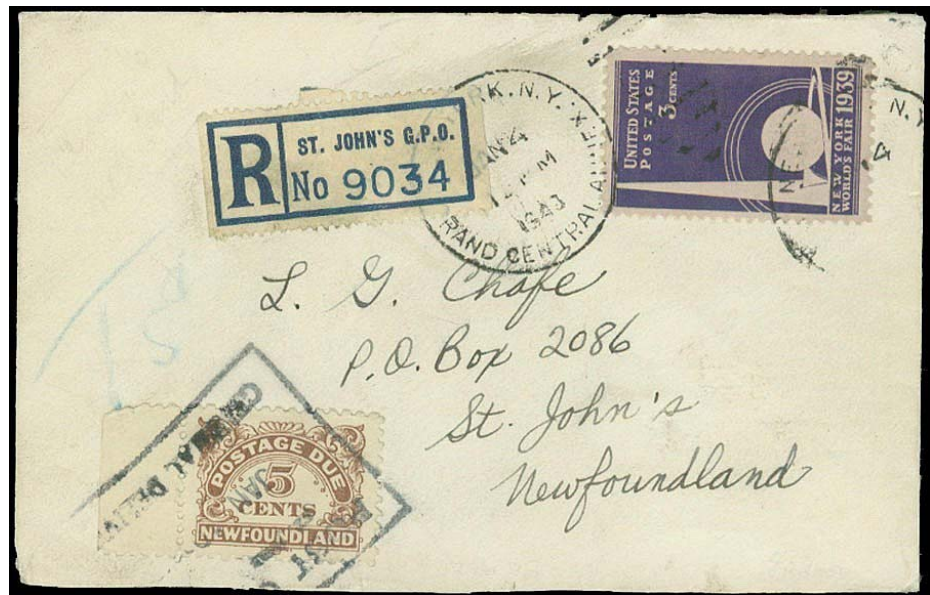 R ST. JOHN'S G.P.O.
No 9034
RK. N.Y.
JAN 24
PM
1943
RAND CENTRAL ANNEX
UNITED STATES
POSTAGE
3 CENTS
NEW YORK
WORLD'S FAIR
1939
N.Y
L. G. Chafe
P.O. Box 2086
St. John's
Newfoundland
POSTAGE DUE
5
CENTS
NEWFOUNDLAND
JAN